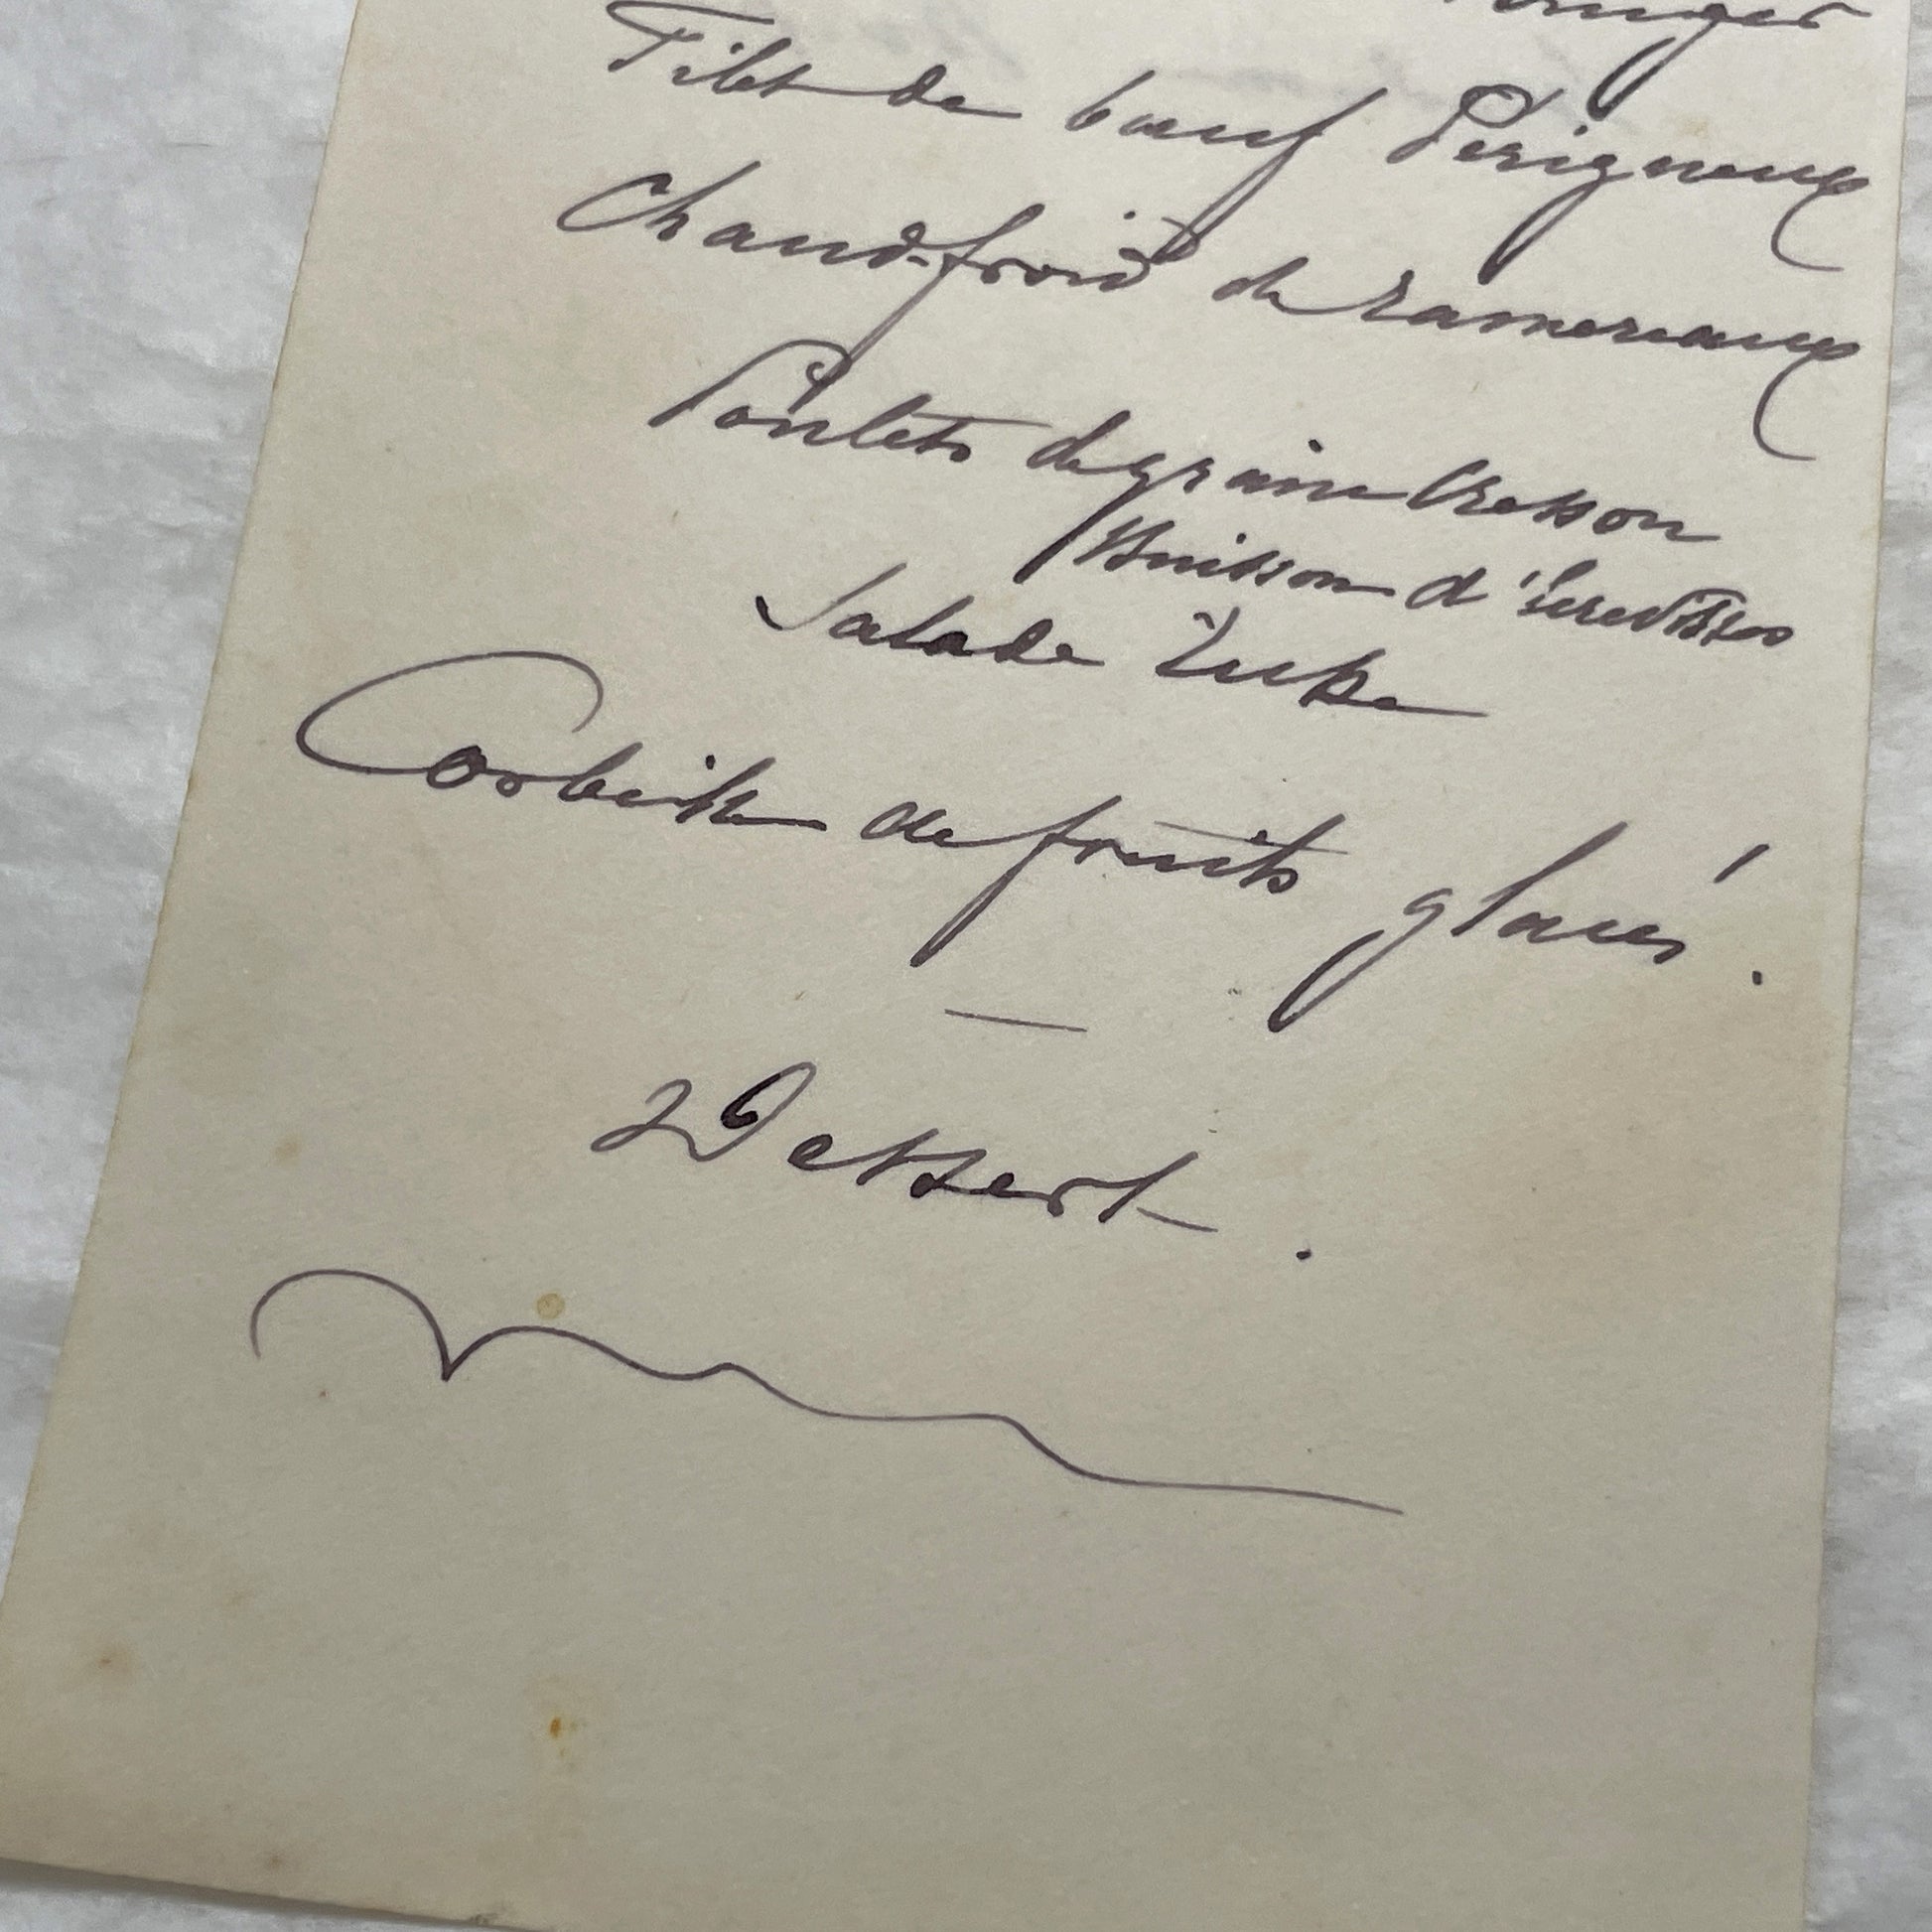 Filet de bœuf Perigueux
Chaud-froid de ramereaux
Poulets de grain Cresson
Buisson d'écrevisses
Salade Russe
Corbeille de fruits glacés.
Dessert.